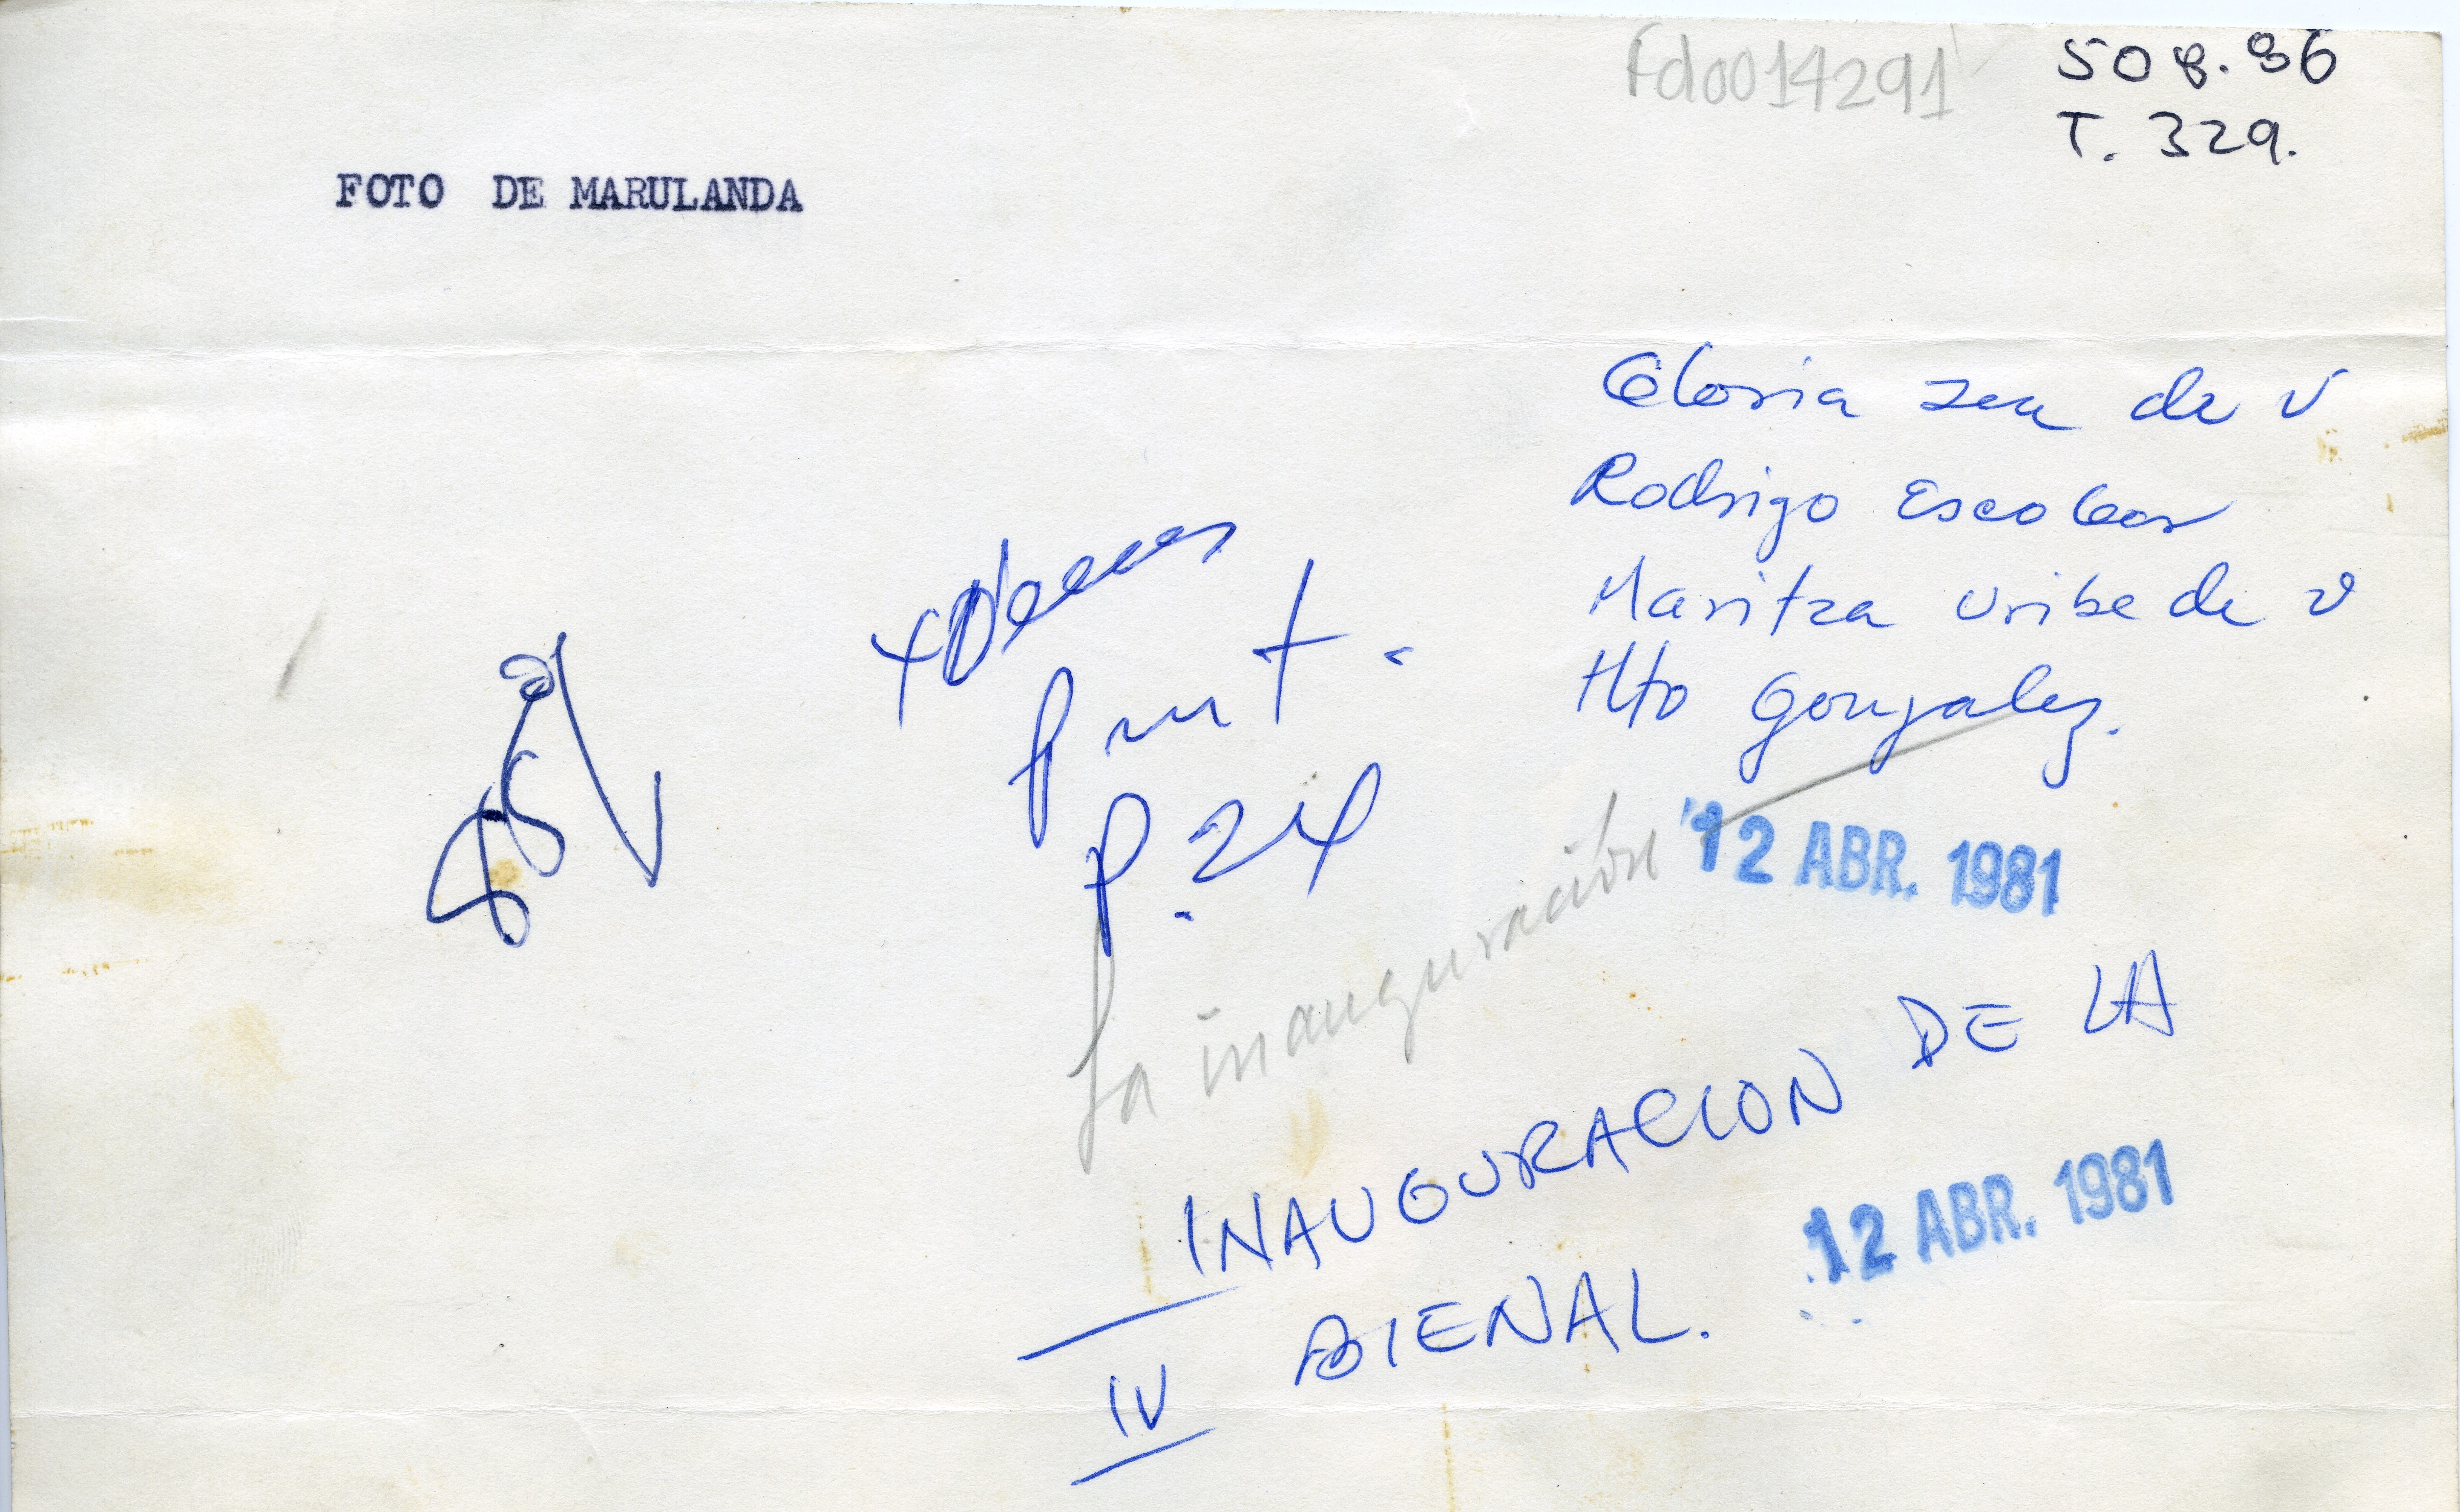 fd0014291
508.86
T. 329.
FOTO DE MARULANDA
Gloria Zea de V
Rodrigo Escobar
Maritza Uribe de V
Hto Gonzalez.
P. 24
12 ABR. 1981
La inauguración
INAUGURACION DE LA
IV BIENAL.
12 ABR. 1981